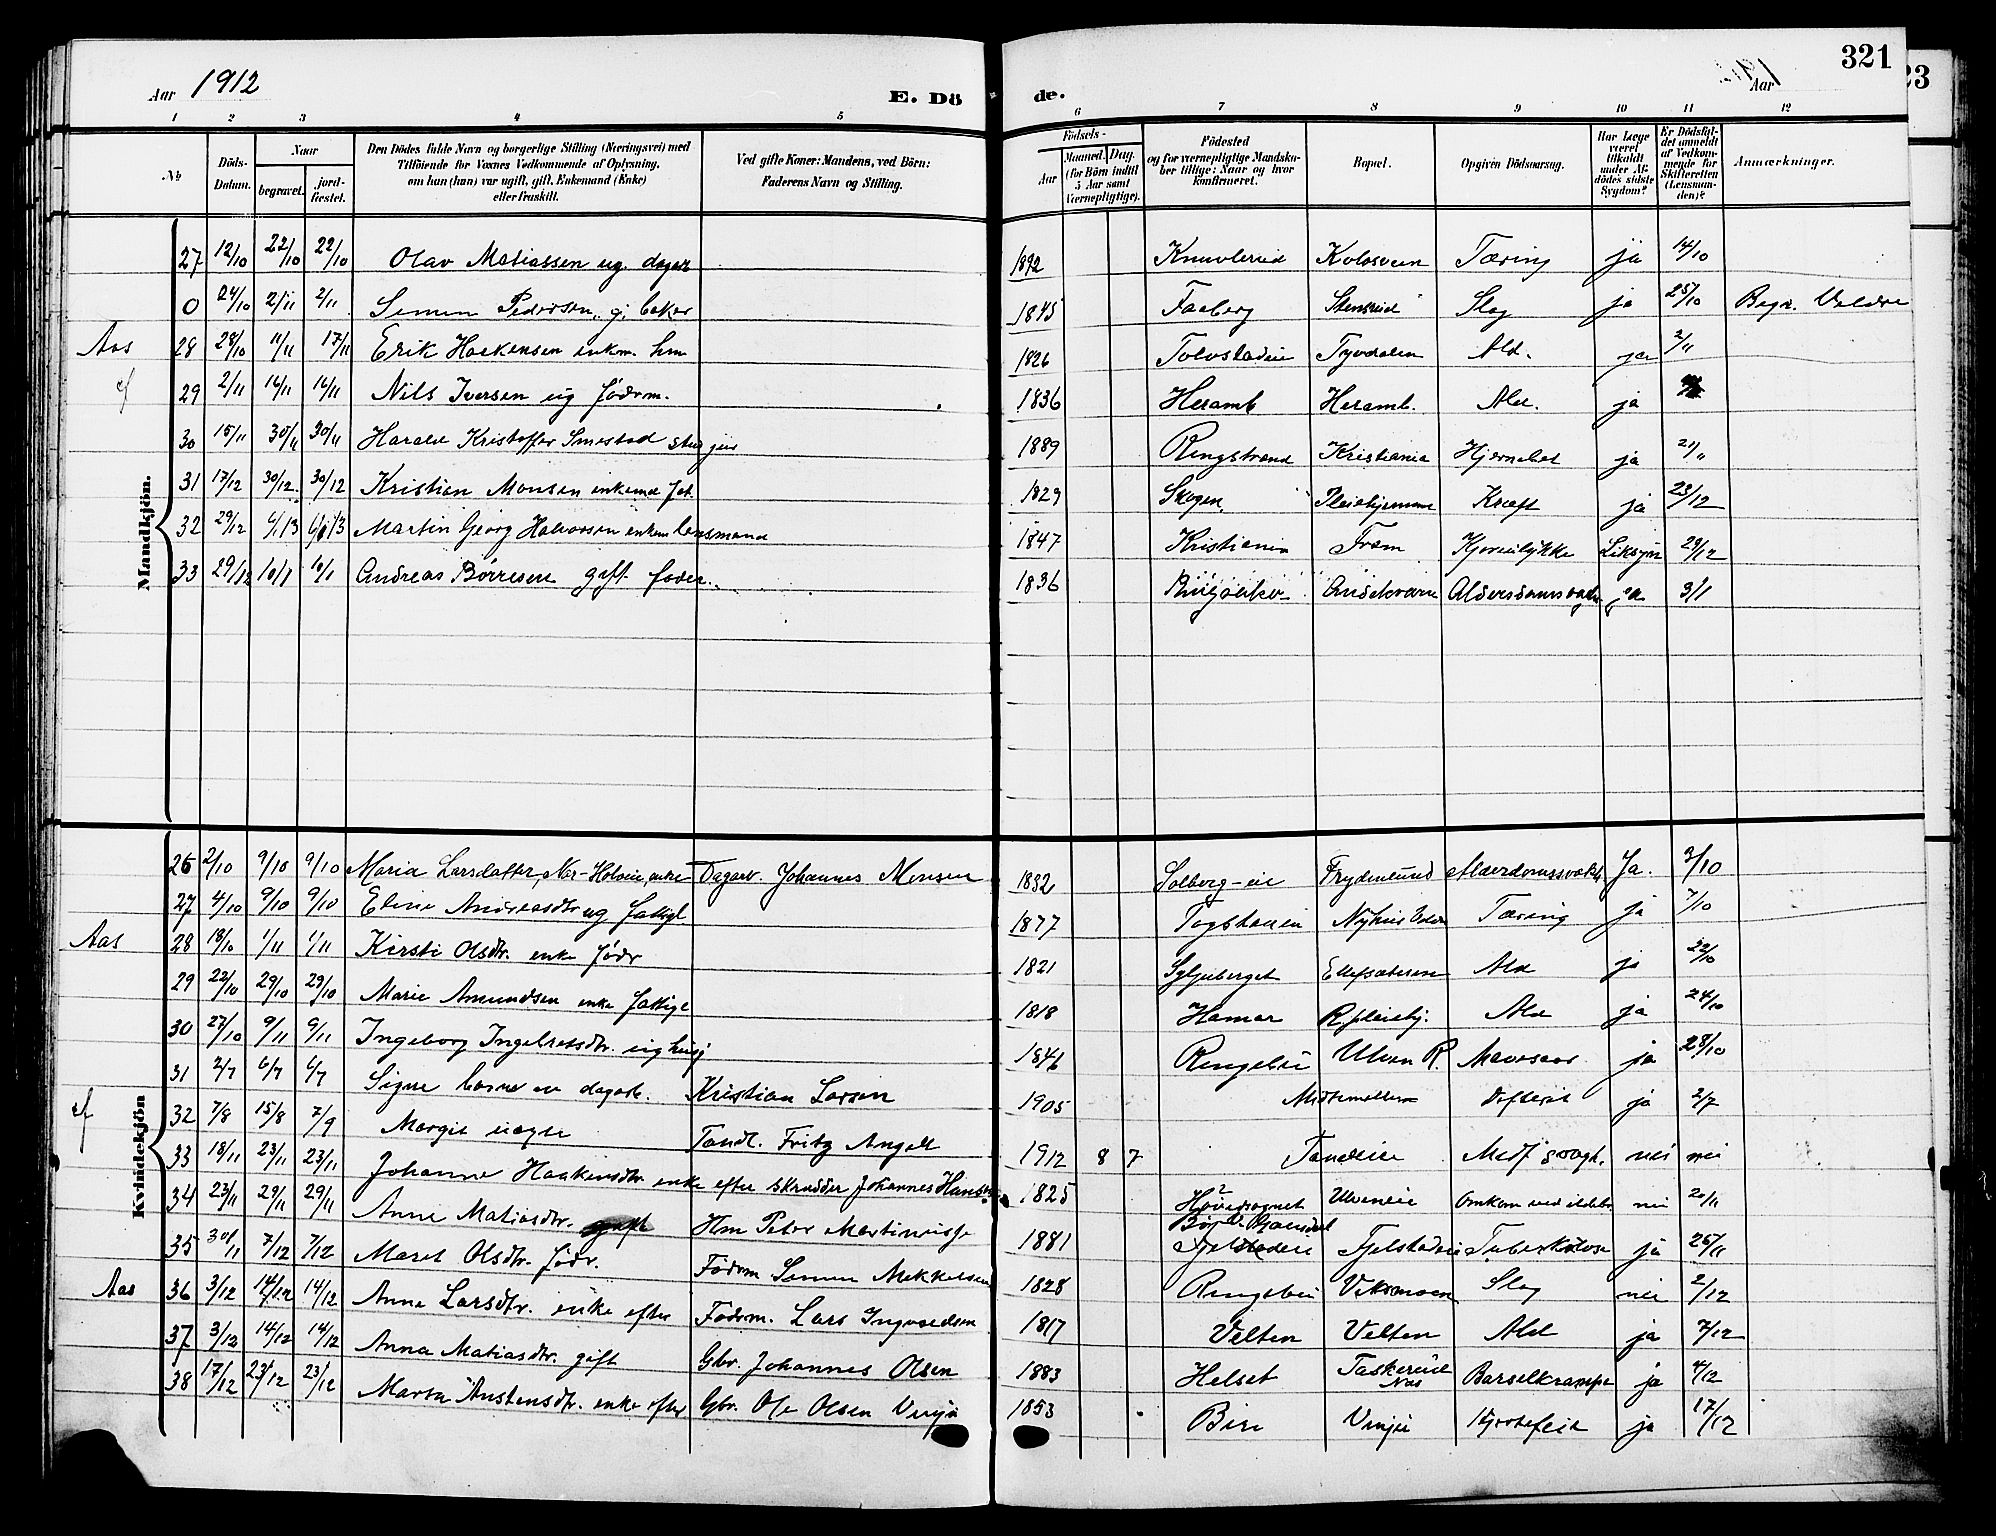 321
23
Aar 1912
E. Dö
de.
Aar 191
1 2 3 4 5
6 7 8 9 10 11 12
No
Döds-Datum.
Naar
begravet.
jord-fæstet.
Den Dödes fulde Navn og borgerlige Stilling (Næringsvei) med
Tilföiende for Voxnes Vedkommende af Oplysning,
om hun (han) var ugift, gift, Enkemand (Enke)
eller fraskilt.
Ved gifte Koner: Mandens, ved Börn:
Faderens Navn og Stilling.
Födsels-
Aar
Maaned. Dag.
(for Börn indtil 5 Aar samt Værnepligtige).
Födested
og for værnepligtige Mandskaber tillige: Naar og hvor konfirmeret.
Bopæl.
Opgiven Dödsaarsag.
Har Læge været tilkaldt under Afdödes sidste Sygdom?
Er Dödsfaldet anmeldt af Vedkommende for Skifteretten (Lensmanden)?
Anmærkninger.
Mandkjön.
27 12/10 22/10 22/10 Olav Matiassen ug. dagarb 1892 Kolosveen Tæring ja 14/10
0 24/10 2/11 2/11 Simen Pedersen, g. baker 1845 Faaberg Stensrud Slag ja 25/10 Begr. Veldre
Aas 28 28/10 11/11 17/11 Erik Haakensen enkm. hm 1826 Tolvstadeie Tyvdalen Ald. ja 2/11
29 2/11 16/11 16/11 Nils Iversen ug födrm. 1836 Heramb Heramb. Ald. ja
30 15/11 30/11 30/11 Harald Kristoffer Smestad 1889 Ringstrand Kristiania Hjernebet ja 21/11
31 17/12 30/12 30/12 Kristian Monsen enkemd fat. 1829 Skogen Pleiehjemme Kræft ja 23/12
32 29/12 6/1 13 6/1 13 Martin Georg Halvorsen enkem lensmand 1847 Kristiania Fram Liksyn 29/12
33 29/12 10/1 10/1 Andreas Börresen gift foder. 1836 Ringsaker Alderdomssvagh. ja 3/1
Kvindekjön
26 2/10 9/10 9/10 Maria Larsdatter, Nes-Holmeie, enke Dagarb. Johannes Monsen 1832 Solberg-eie Frydenlund Alderdomssvakh. Ja. 3/10
27 4/10 9/10 9/10 Eline Andreasdtr ug fattigl 1877 Togstadeien Nyhus Tæring ja 7/10
Aas 28 18/10 1/11 1/11 Kirsti Olsdtr. enke födr 1821 Syljuberget Ellefsæteren Ald ja 22/10
29 22/10 29/10 29/10 Marie Amundsen enke fattigl 1818 Hamar R. pleiehj. Ald ja 24/10
30 27/10 9/11 9/11 Ingeborg Ingebretsdtr. ug husj 1846 Ringebu Ulven R. Mavesaar ja 28/10
31 2/7 6/7 6/7 Signe barn av dagarb. Kristian Larsen 1905 Difterit ja 2/7
32 7/8 15/8 7/9 Margit uægte Tandl. Fritz Angell 1912 8 7 Tandeie Medf svagh. nei nei
33 18/11 23/11 23/11 Johanne Haakensdtr enke efter skrædder Johannes Hansen 1825 Ulveneie Omkom ved ildebr nei 20/11
34 23/11 29/11 29/11 Anne Matiasdtr. gift Hm Peter Martiniusse 1881 Fjelstadeie Fjelstadeie Tuberkulose ja 25/11
35 30/11 7/12 7/12 Maret Olsdtr. födr. Födrm Simen Mikkelsen 1828 Ringebu Slag nei 2/12
Aas 36 3/12 14/12 14/12 Anne Larsdtr. enke efter Födrm. Lars Ingvaldsen 1817 Velten Velten Ald ja 7/12
37 3/12 14/12 14/12 Anna Matiasdtr. gift Gbr. Johannes Olsen 1883 Helset Taskerud Nes Barselkrampe ja 4/12
38 17/12 23/12 23/12 Marta Austensdtr. enke efter Gbr. Ole Olsen Vinju 1853 Biri Vinju Hjertefeil ja 17/12